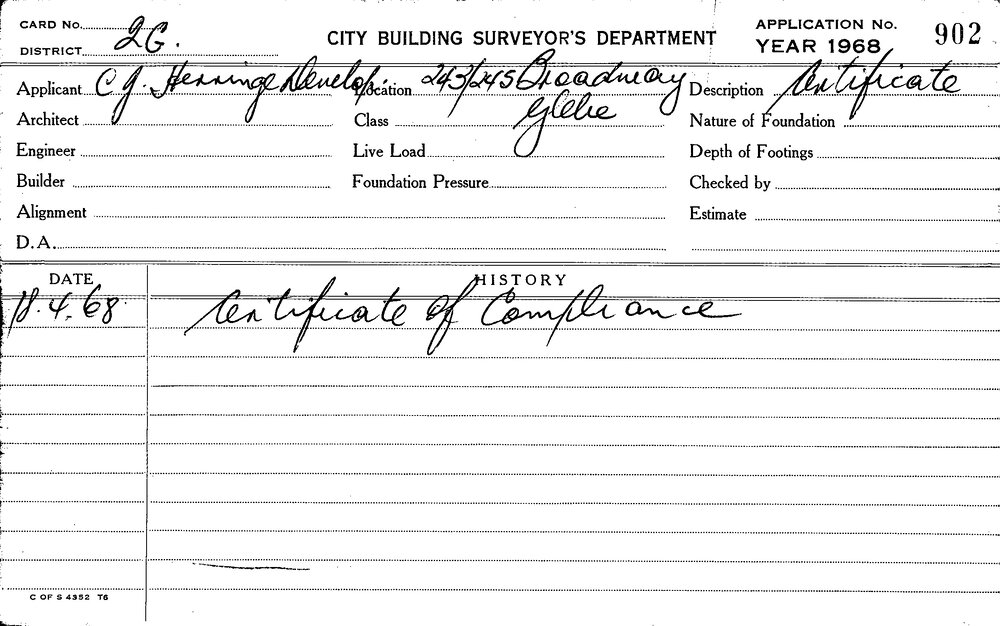 CARD No. 2G.
DISTRICT
CITY BUILDING SURVEYOR'S DEPARTMENT
APPLICATION No. 902
YEAR 1968
Applicant C J. Herringe Develop. Location 243/245 Broadway Description Certificate
Architect Class Glebe Nature of Foundation
Engineer Live Load Depth of Footings
Builder Foundation Pressure Checked by
Alignment Estimate
D.A.
DATE HISTORY
18.4.68 Certificate of Compliance
C OF S 4352 T6